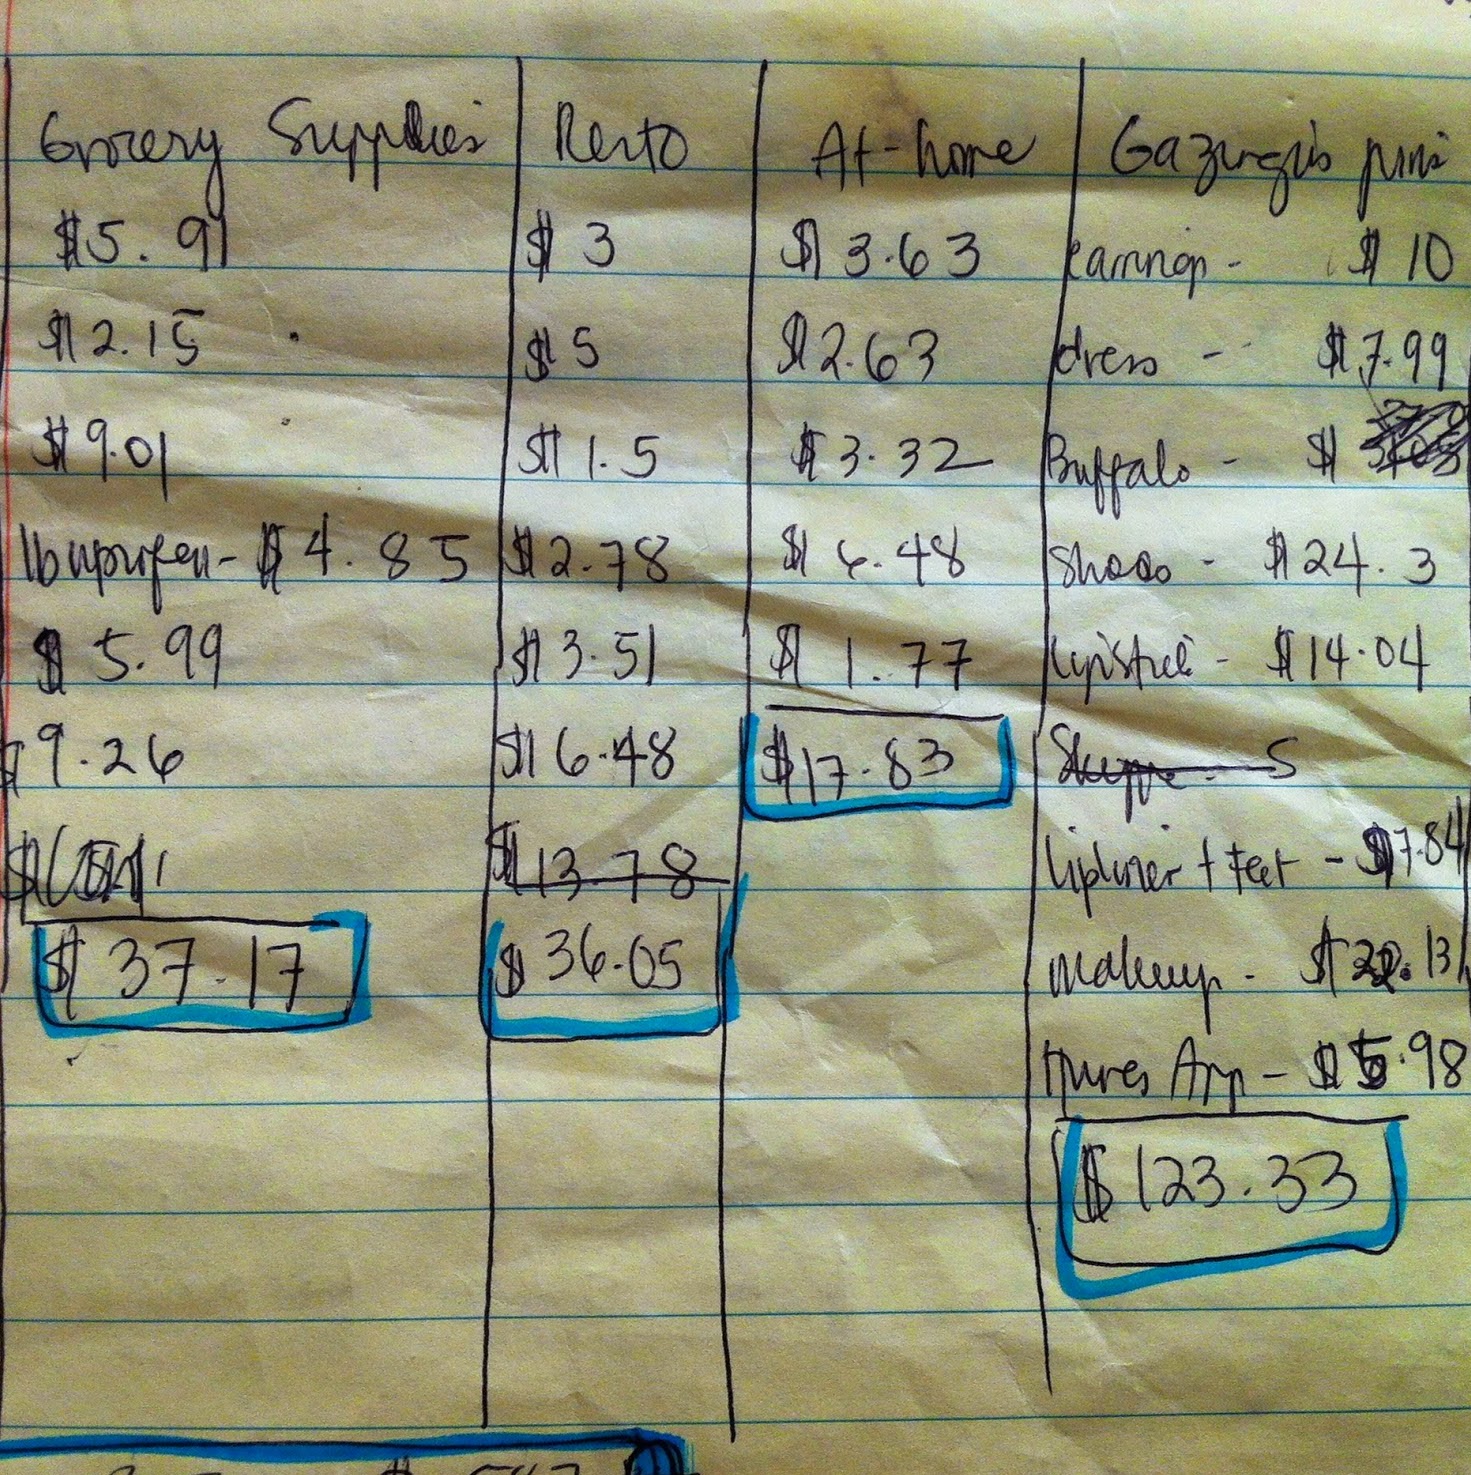 Grocery Supplies
$5.91
$2.15
$9.01
Ibuprofen - $4.85
$5.99
$9.26
$37.17
Resto
$3
$5
$1.5
$2.78
$3.51
$6.48
$13.78
$36.05
At-home
$3.63
$2.63
$3.32
$6.48
$1.77
$17.83
Gazingus pins
earrings - $10
dress - $7.99
Buffalo - $
Shoes - $24.3
Lipstick - $14.04
Skype - 5
lipliner + feet - $7.84
makeup - $22.13
App - $5.98
$123.33